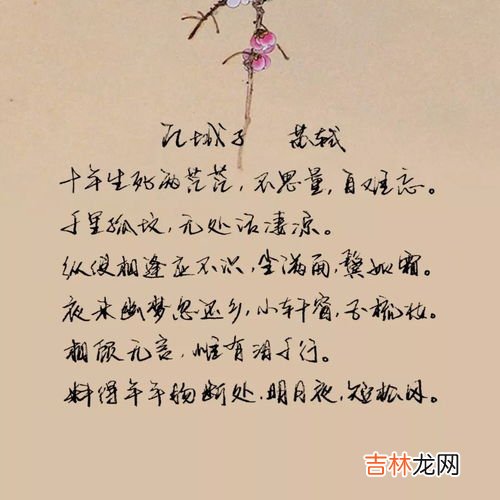 江城子 苏轼
十年生死两茫茫，不思量，自难忘。
千里孤坟，无处话凄凉。
纵使相逢应不识，尘满面，鬓如霜。
夜来幽梦忽还乡，小轩窗，正梳妆。
相顾无言，惟有泪千行。
料得年年肠断处，明月夜，短松冈。
吉林龙网